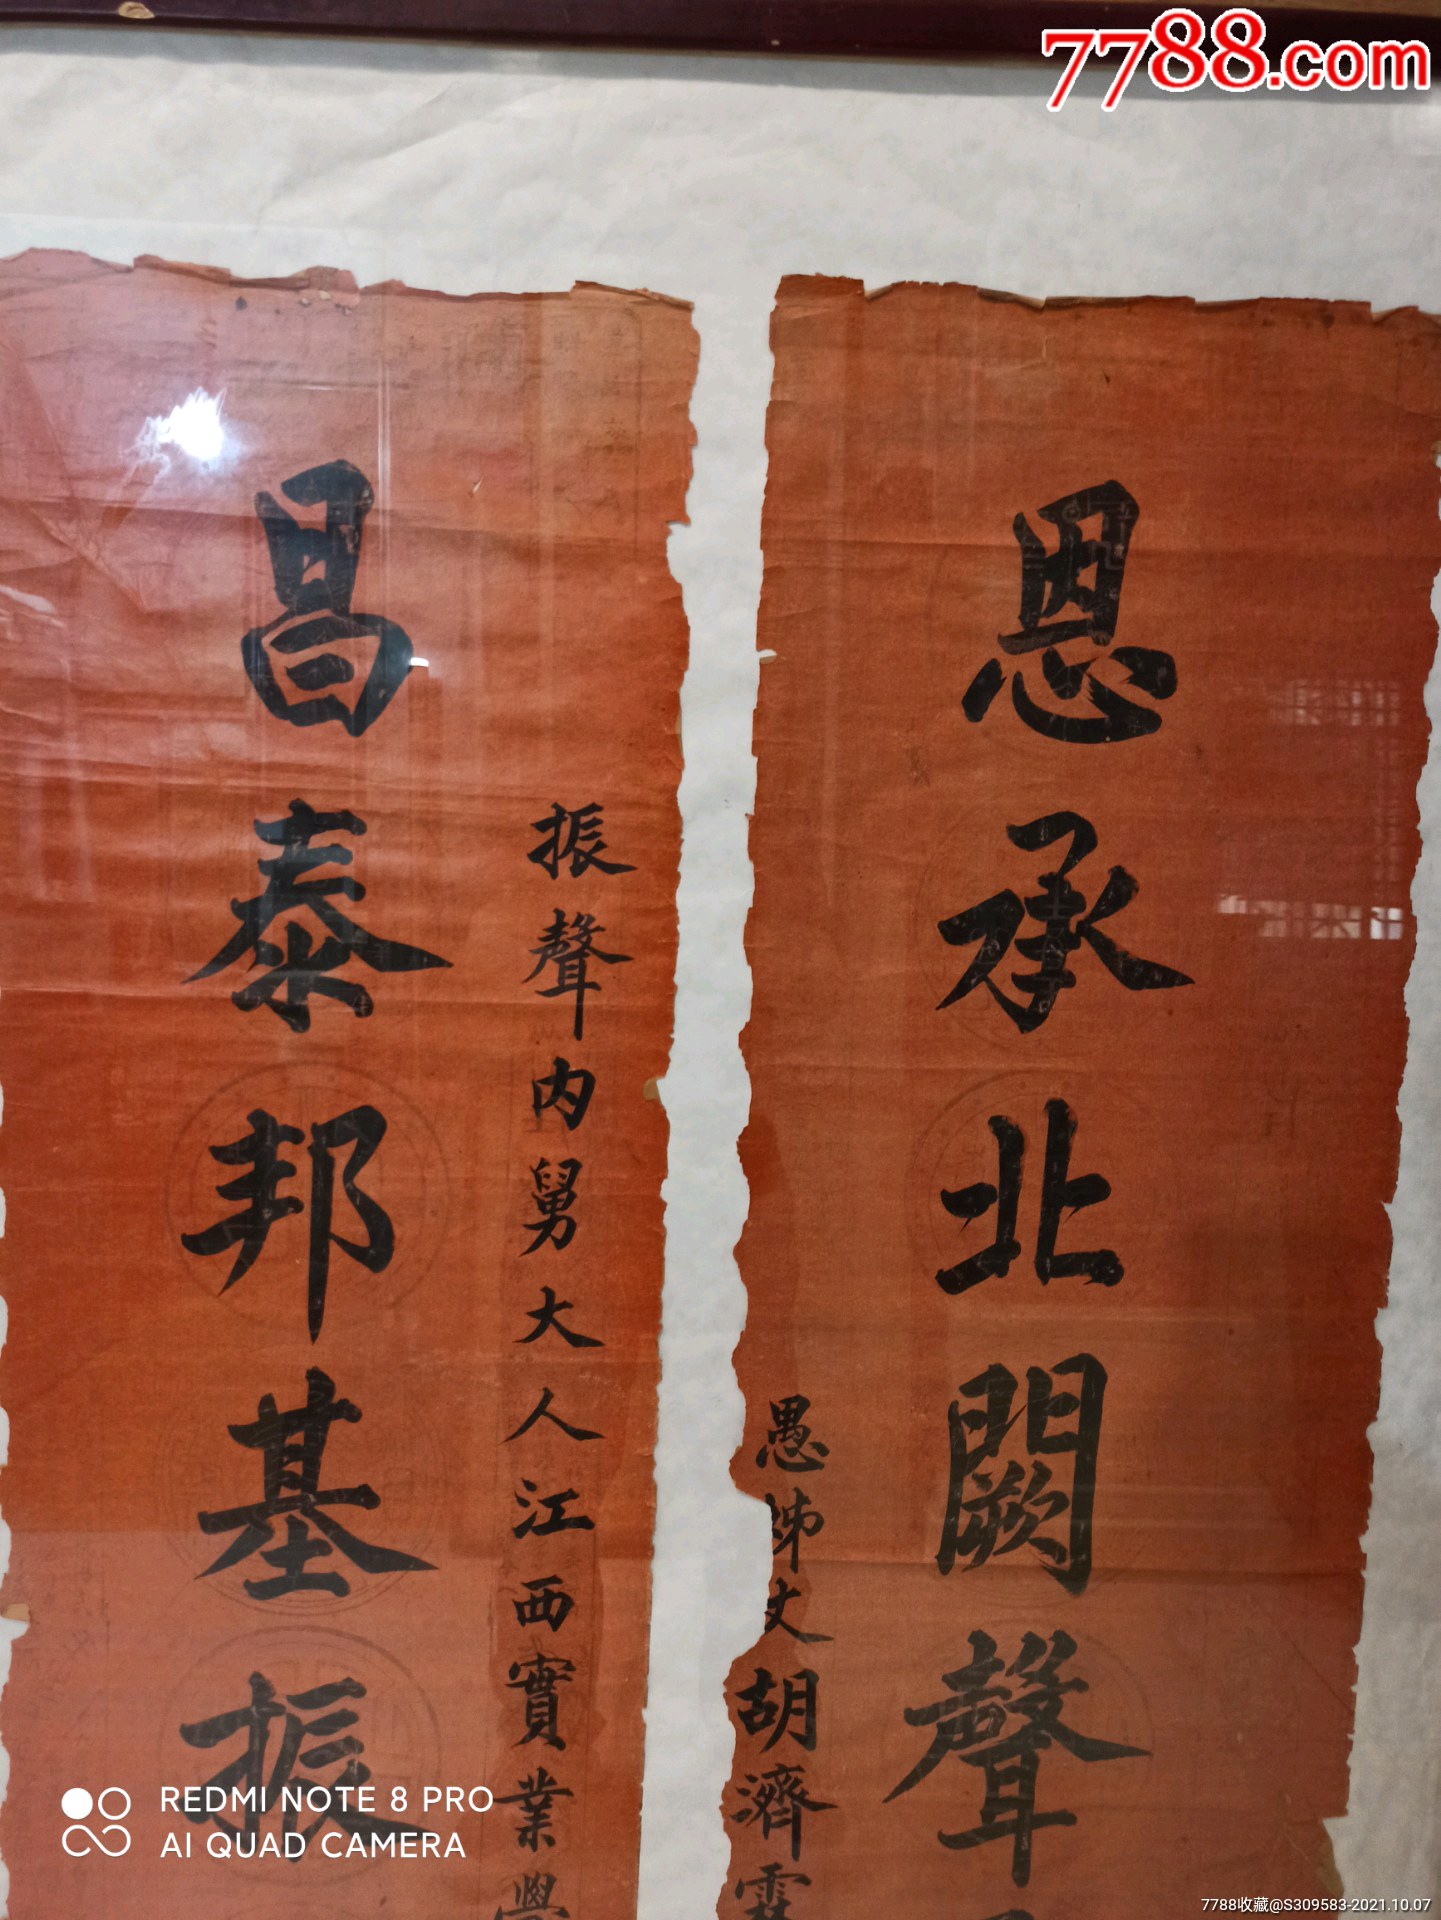 7788.com
恩承北闕聲
愚姊丈胡濟霖
振聲内舅大人江西實業學
昌泰邦基振
REDMI NOTE 8 PRO
AI QUAD CAMERA
7788收藏@S309583-2021.10.07